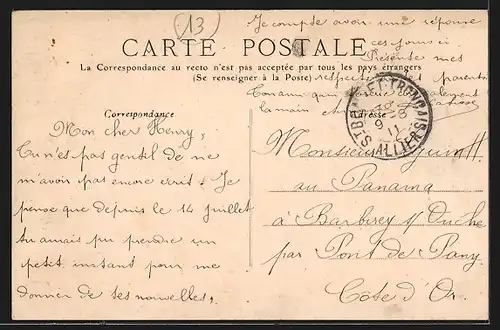 (13)
Je compte avoir une réponse
ces jours ci
Présente mes
CARTE POSTALE
La Correspondance au recto n'est pas acceptée par tous les pays étrangers
(Se renseigner à la Poste)
respects parents
Ton ami qui
la main
Correspondance
Adresse
ALLIER
9 -8
11
Mon cher Henry,
Tu n'es pas gentil de ne
m'avoir pas encore écrit. Je
pense que depuis le 14 juillet
tu aurais pu prendre un
petit instant pour me
donner de tes nouvelles,
Monsieur
au Panama
à Barbirey s/ Ouche
par Pont de Pany
Côte d'Or